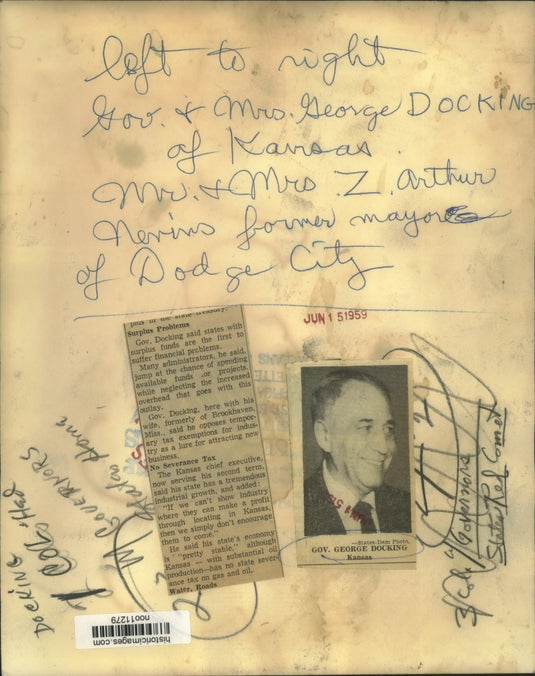 left to right
Gov. & Mrs. George DOCKING
of Kansas.
Mr. & Mrs. Z. Arthur
Nevins former mayor
of Dodge City
JUN 15 1959
pens in the state treasury.
Surplus Problems
Gov. Docking said states with
surplus funds are the first to
suffer financial problems.
Many administrators, he said,
jump at the chance of spending
available funds or projects,
while neglecting the increased
overhead that goes with this
outlay.
Gov. Docking, here with his
wife, formerly of Brookhaven,
Miss., said he opposes tempor-
ary tax exemptions for indus-
try as a lure for attracting new
business.
No Severance Tax
The Kansas chief executive,
now serving his second term,
said his state has a tremendous
industrial growth, and added:
"If we can't show industry
where they can make a profit
through locating in Kansas,
then we simply don't encourage
them to come."
He said his state's economy
"pretty stable," although
Kansas — with substantial oil
production—has no state sever-
ance tax on gas and oil.
Water, Roads
—States-Item Photo.
GOV. GEORGE DOCKING
Kansas
DOCKING
GOVERNORS
Governors
States
historicimages.com
noo11279